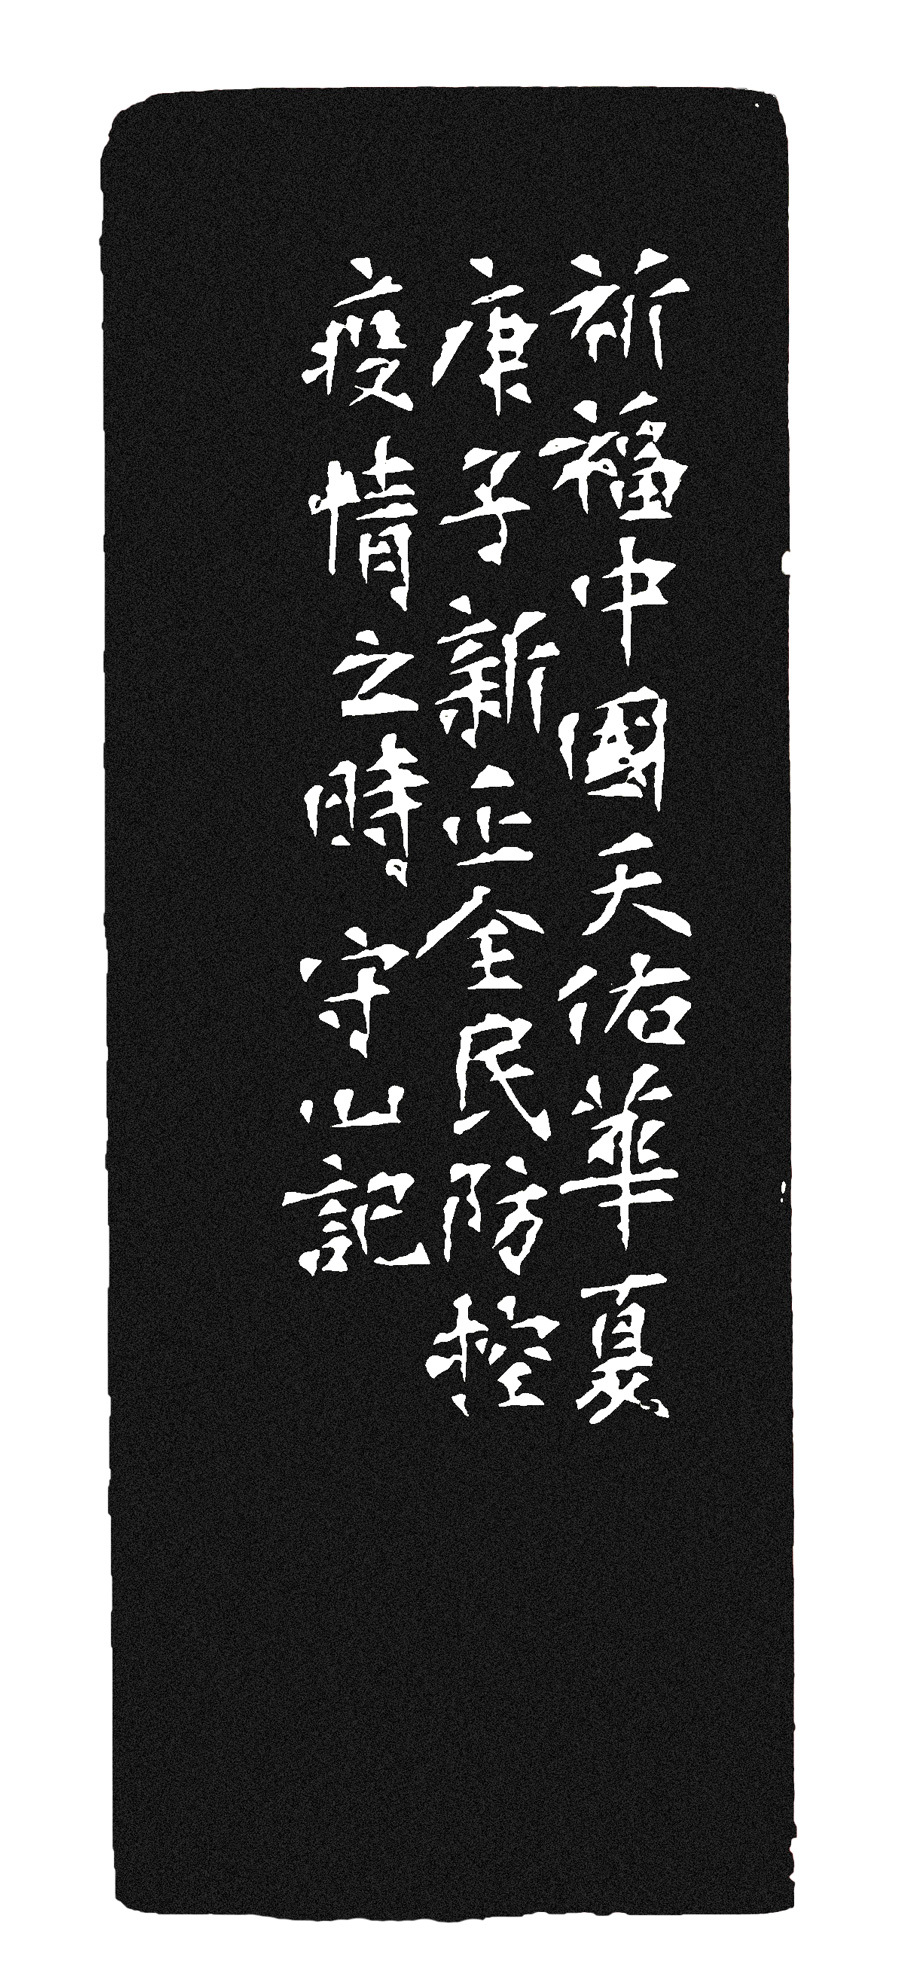 祈福中國天佑華夏
庚子新正全民防控
疫情之時。守山記